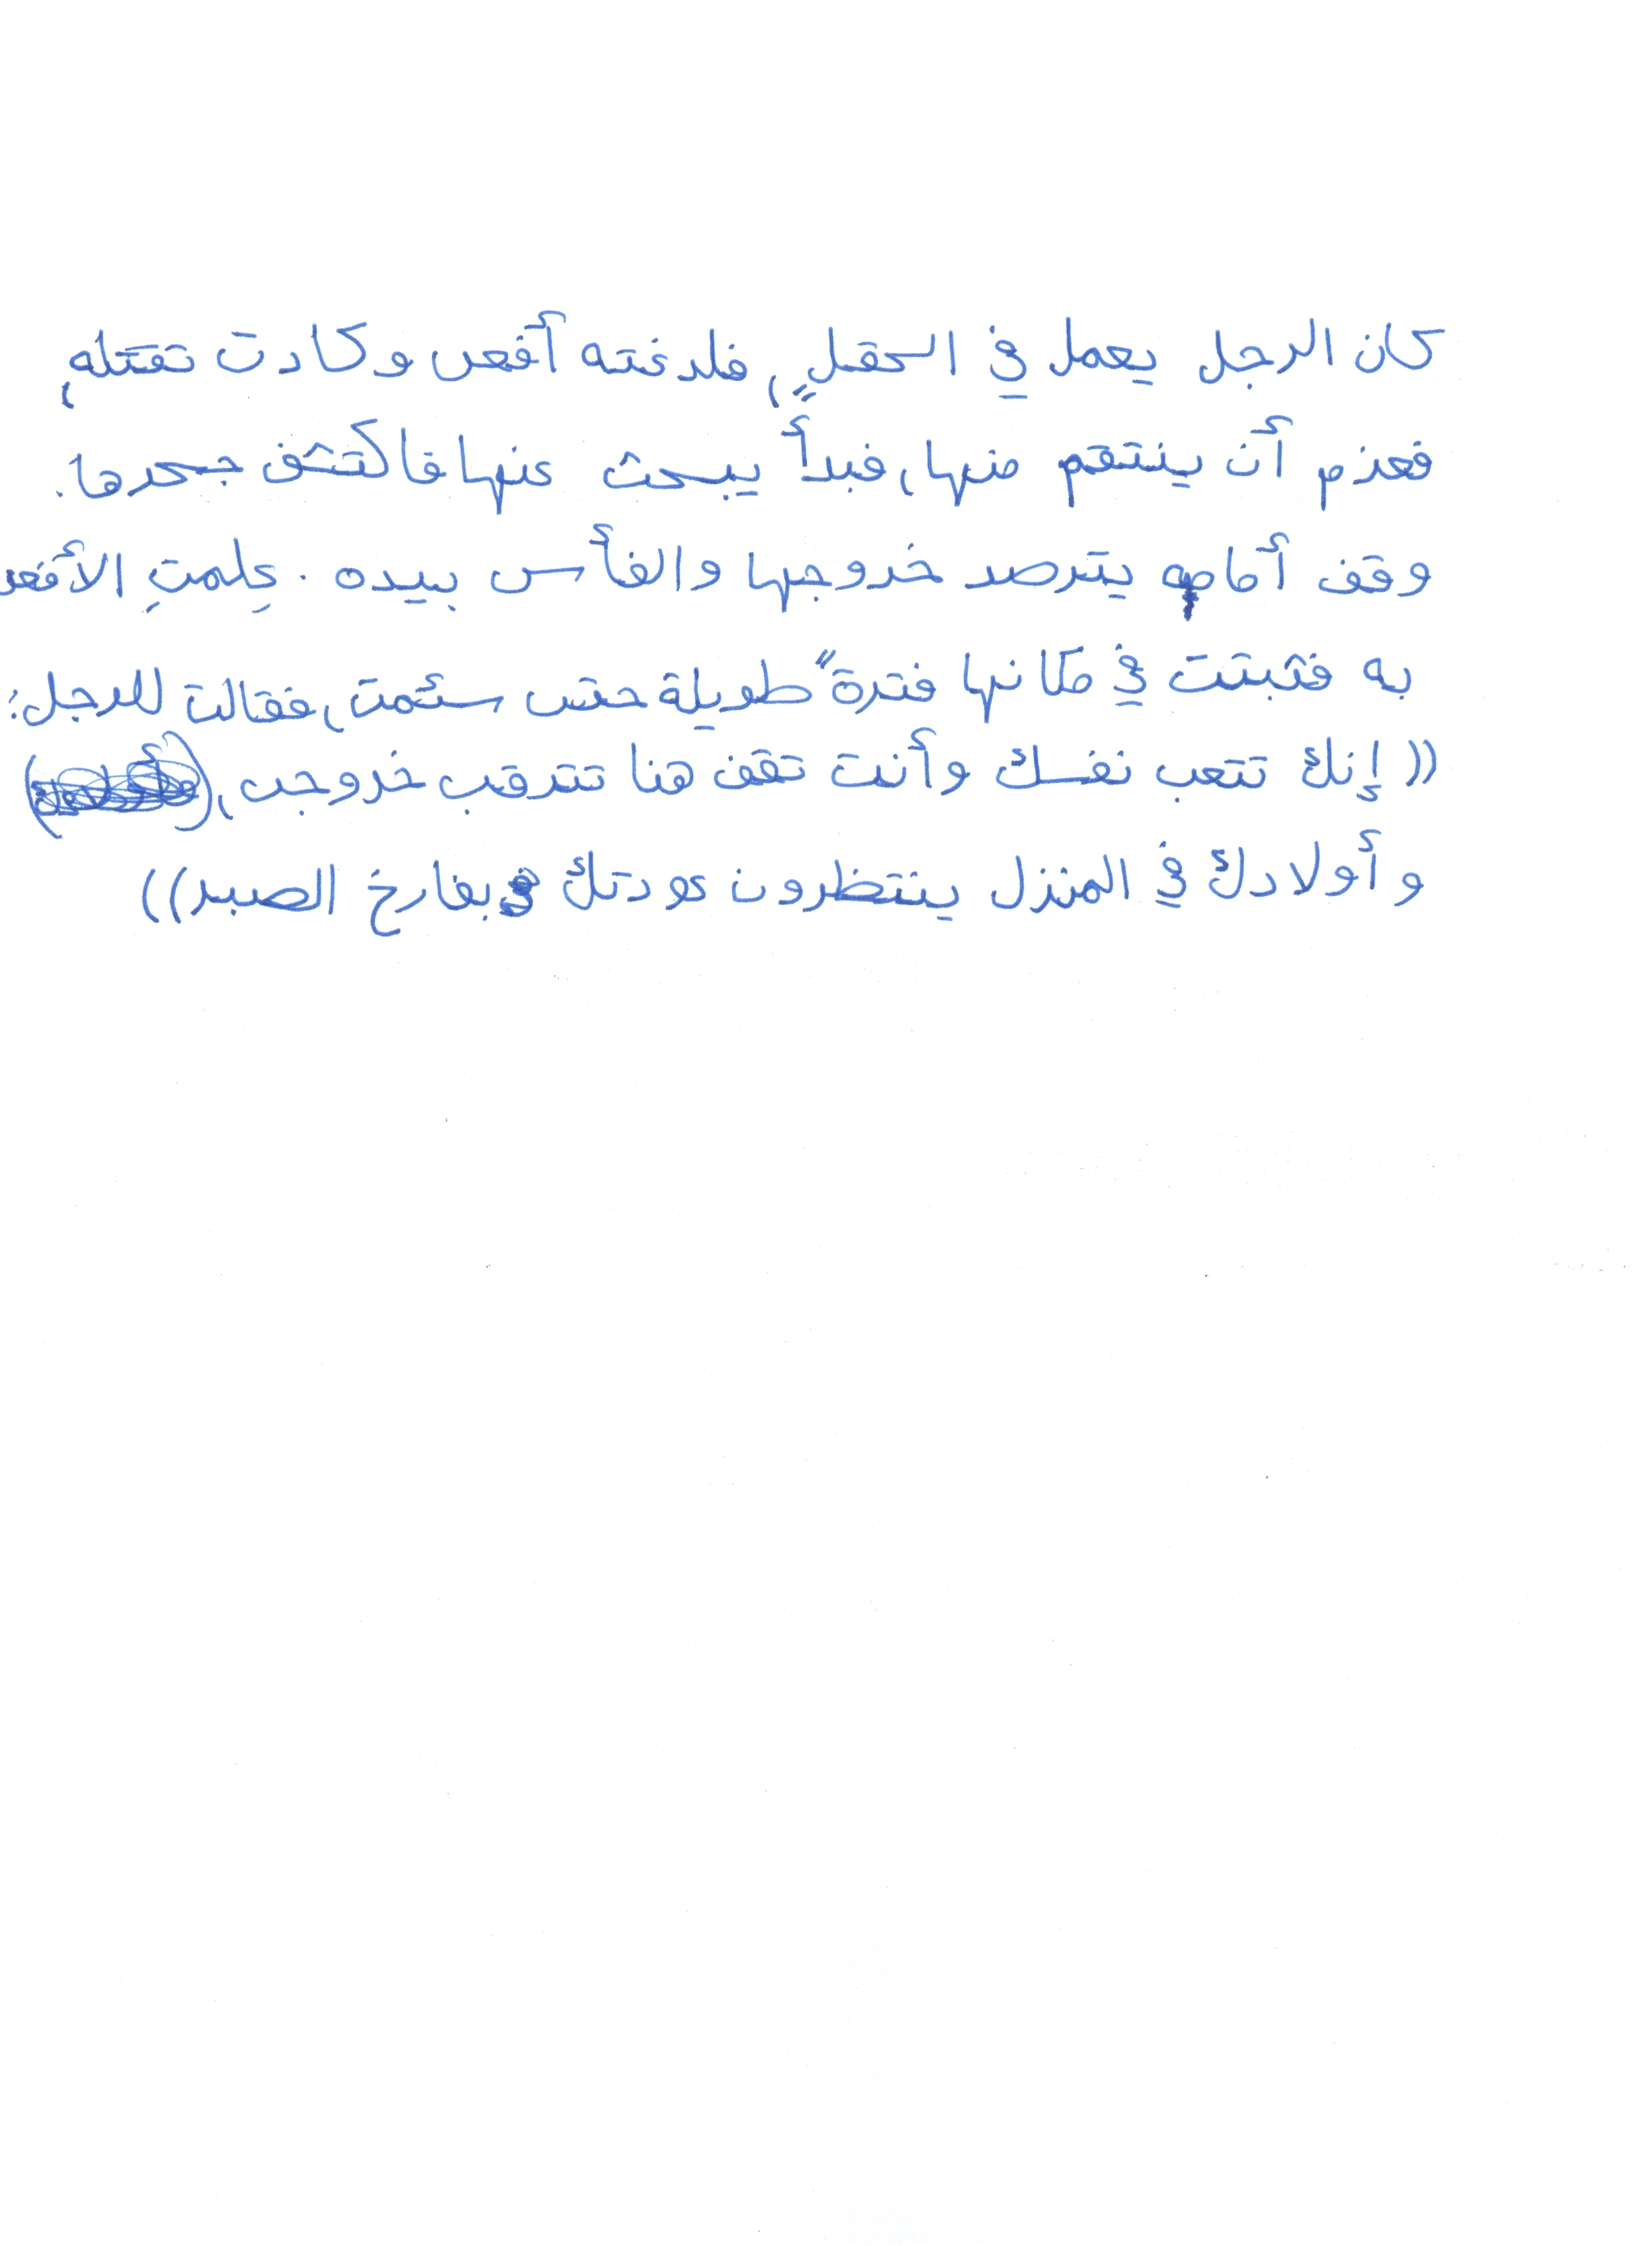 كان الرجل يعمل في الحقلِ، فلدغته أفعى وكادت تقتله،
فعزم أن ينتقم منها، فبدأ يبحث عنها فاكتشف جحرها.
وقف أمامه يترصد خروجها والفأس بيده. عِلمتِ الأفعى
به فثبتت في مكانها فترةً طويلة حتى سئمت، فقالت للرجل:
((إنك تتعب نفسك وأنت تقف هنا تترقب خروجي،
وأولادك في المنزل ينتظرون عودتك بفارغ الصبر))